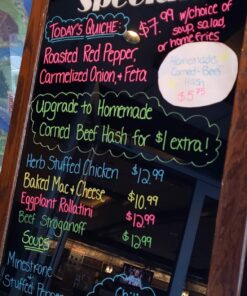 Specials
Today's Quiche: $7.99 w/choice of
soup, salad,
or home fries
Roasted Red Pepper,
Carmelized Onion, & Feta
Homemade
Corned-Beef
Hash
$5.75
Upgrade to Homemade
Corned Beef Hash for $1 extra!
Herb Stuffed Chicken $12.99
Baked Mac & Cheese $10.99
Eggplant Rollatini $12.99
Beef Stroganoff $12.99
Soups
Minestrone
Stuffed Pepper
Chili